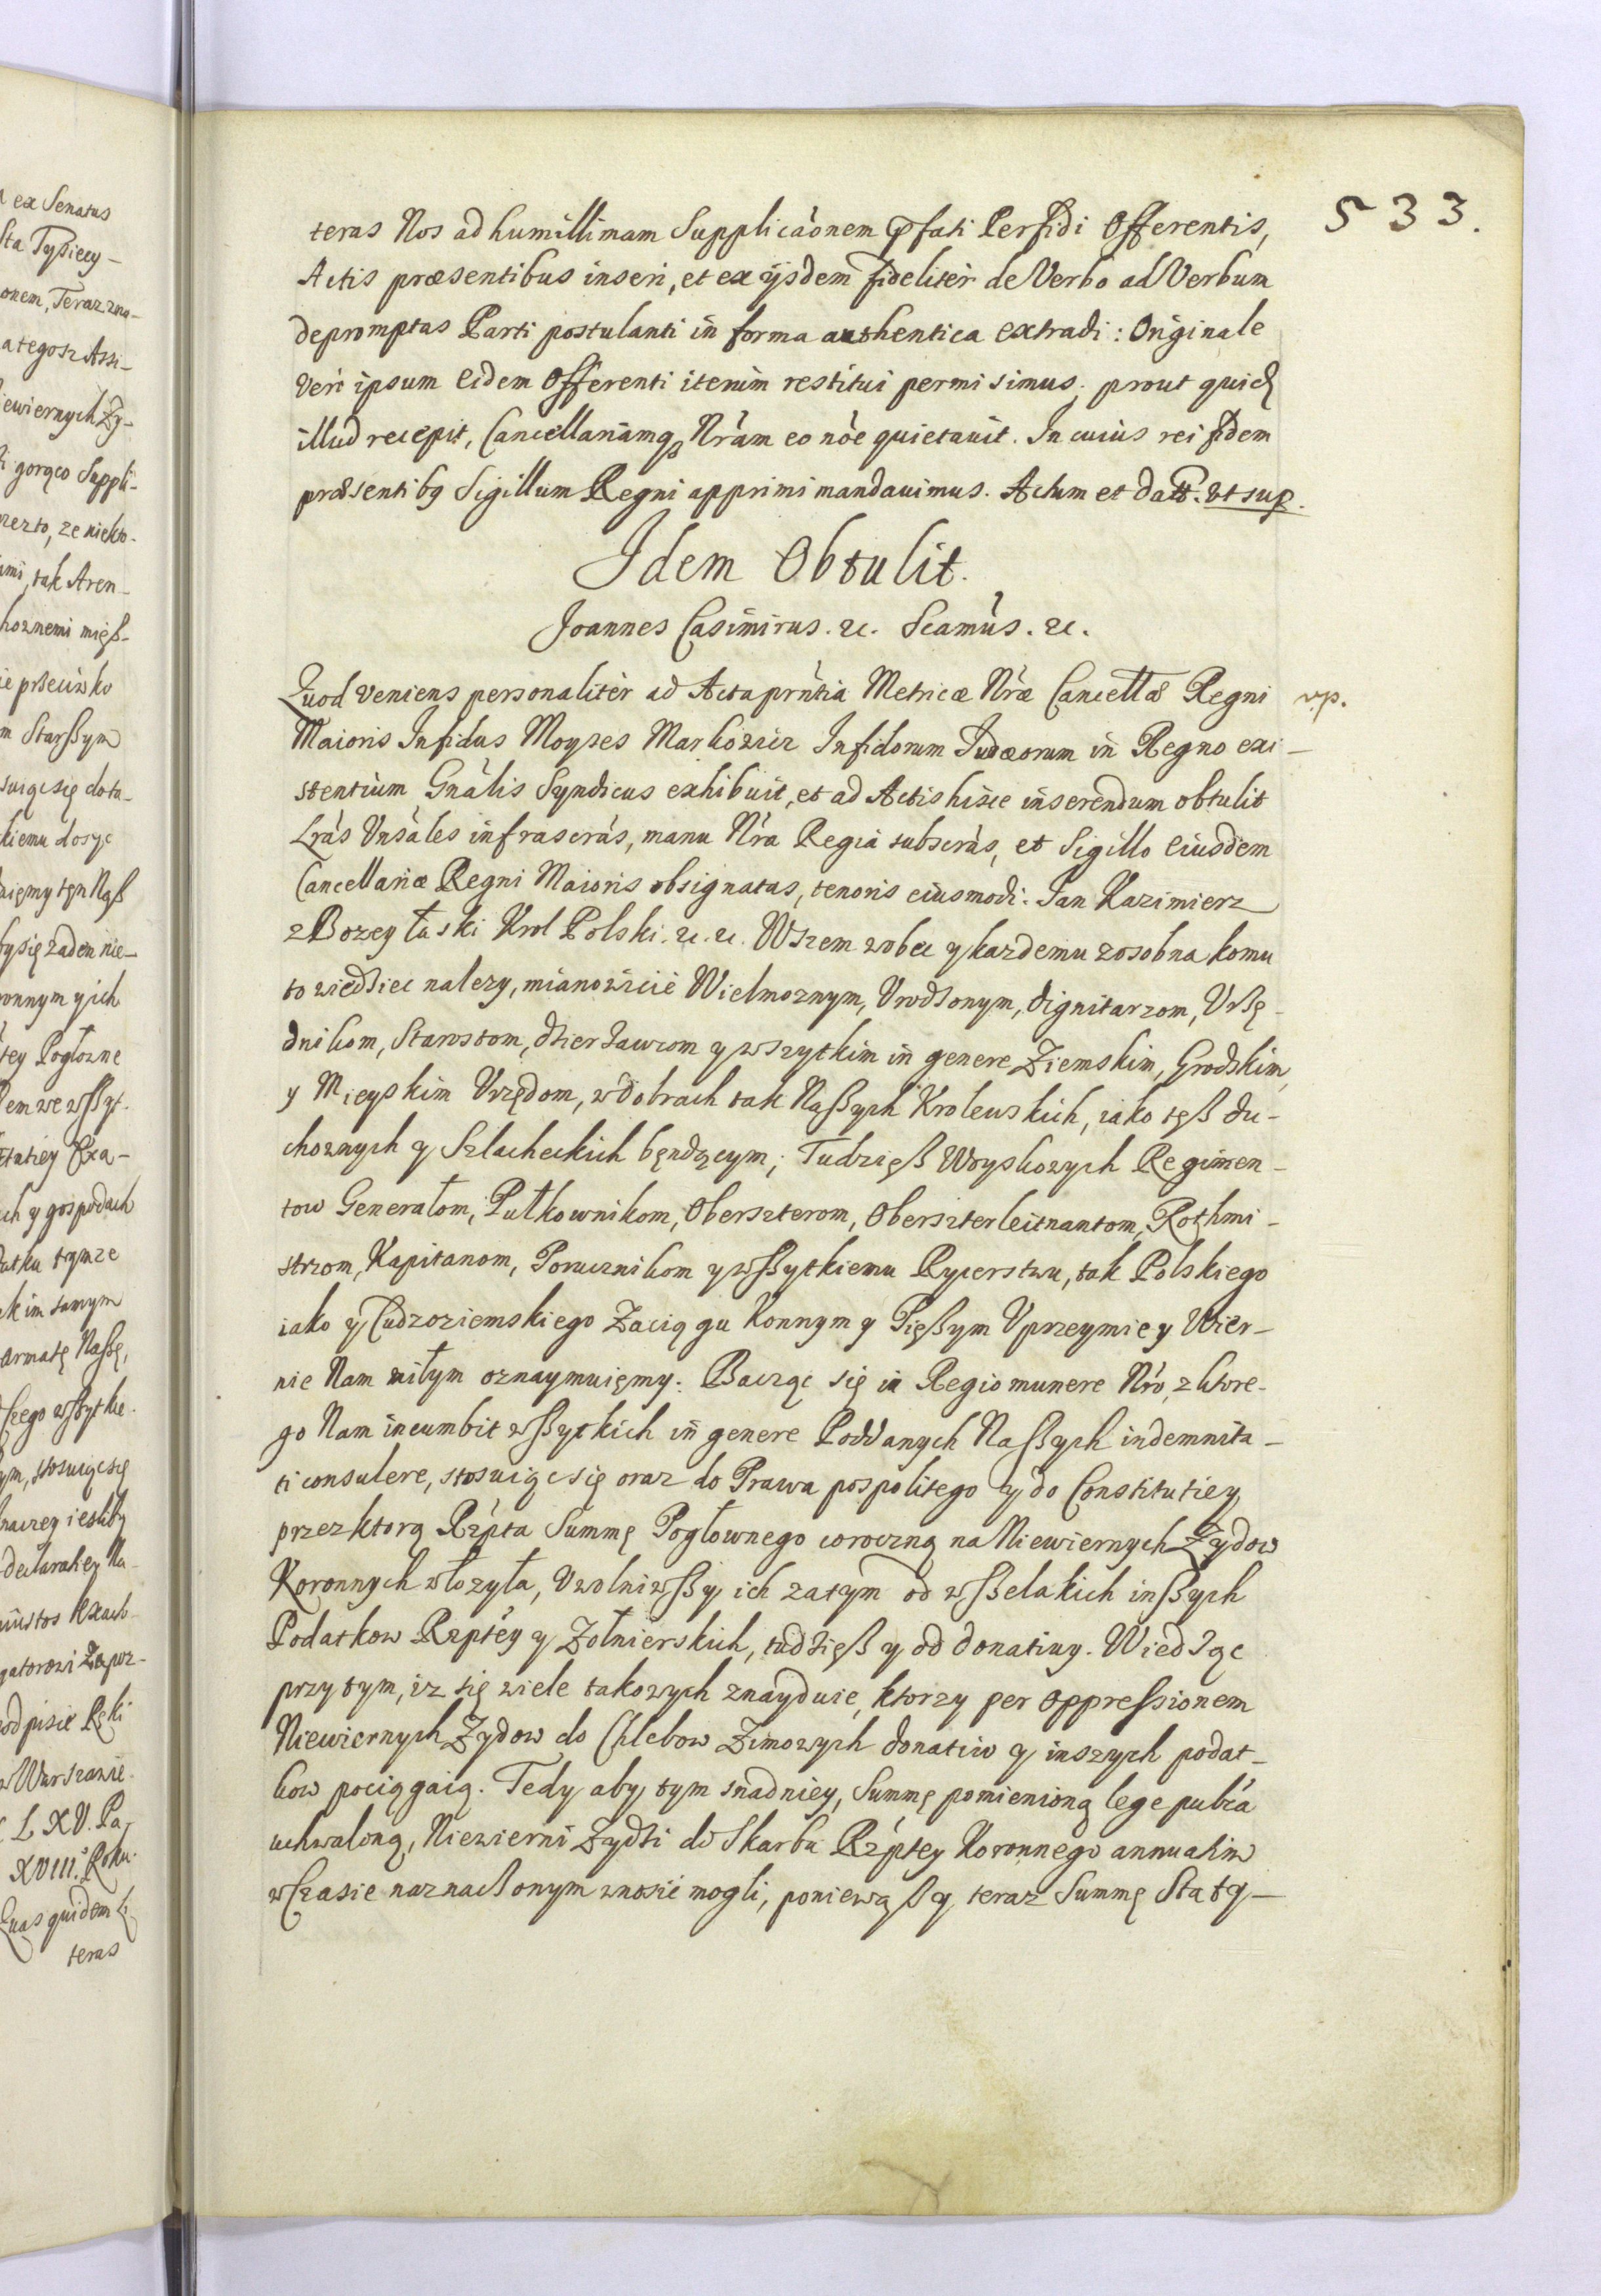 ex Senatus
sta Tysiecy-
onem, Teraz zna-
ategosz Assi-
iewiernych Zy-
i gorąco Suppli-
rzez to, ze niekto-
imi, tak Aren-
hownemi mięß-
ie przeciwko
m Starßym
suiąc się do ta-
kiemu dosyc
uięmy tęn Naß
by się zaden nie-
ronnym y ich
tey Pogłowne
em we wßyt-
titutiey Exa-
ch y gospodach
datku tymze
ak im samym
armatę Naßę,
wßytkie
ym, stosuiąc się
naczey iesliby
declaratiey Na-
gatorowi Zapoz-
podpisie Ręki
w Warszawie
L XV. Pa-
XVIII. Roku.
Quas quidem Li-
teras
533.
teras Nos ad humillimam Supplicaonem pfati Perfidi Offerentis,
Actis præsentibus inseri, et ex ijsdem fideliter de Verbo ad Verbum
depromptas Parti postulanti in forma authentica extradi: Originale
vero ipsum eidem Offerenti iterum restitui permisimus, prout quid
illud recepit, Cancellariamq Nram eo noe quietauit. In cuius rei fidem
præsentibq Sigillum Regni apprimi mandauimus. Actum et datt. vt sup.
Idem Obtulit.
Joannes Casimirus. etc. Scamus. etc.
Quod veniens personaliter ad Acta prntia Metricæ Nræ Cancellæ Regni
vp.
Maioris Infidus Moyzes Markowicz Infidorum Judæorum in Regno exi-
stentium Gnalis Syndicus exhibuit, et ad Actis hisce inserendum obtulit
Lras Vnsales infrascras, manu Nra Regia subscras, et Sigillo eiusdem
Cancellariæ Regni Maioris obsignatas, tenoris eiusmodi. Jan Kazimierz
z Bozey łaski Krol Polski. etc. etc. Wszem wobec y kazdemu zosobna komu
to wiedziec nalezy, mianowicie Wielmoznym, Vrodzonym, Dignitarzom, Vrßę-
dnikom, Starostom, dzierzawcom y wszytkim in genere Ziemskim, Grodskim,
y Mieyskim Vrzędom, w dobrach tak Naßych Krolewskich, iako tęß du-
chownych y Szlacheckich będącym; Tudzięß Woyskowych Regimen-
tow Generałom, Pułkownikom, Oberszterom, Oberszterleitnantom, Rothmi-
strzom, Kapitanom, Porucznikom y wßytkiemu Rycerstwu, tak Polskiego
iako y Cudzoziemskiego Zaciągu Konnym y Pięßym Vprzeymie y Wier-
nie Nam miłym oznaymuięmy. Bacząc się in Regio munere Nro, z ktore-
go Nam incumbit wßytkich in genere Poddanych Naßych indemnita-
ti consulere, stosuiąc się oraz do Prawa pospolitego y do Constitutiey,
przez ktorą Rzpta Summę Pogłownego coroczną na Niewiernych Zydow
Koronnych włozyła, Vwolniwßy ich zatym od wßelakich inßych
Podatkow Rzptey y Zołnierskich, tudzięß y od donatiwy. Wiedząc
przy tym, iz się wiele takowych znayduie, ktorzy per oppressionem
Niewiernych Zydow do Chlebow Zimowych donatiw y inszych podat-
kow pociągaią. Tedy aby tym snadniey, Summę pomienioną lege publca
uchwaloną, Niewierni Zydzi do Skarbu Rzptey Koronnego annuatim
w Czasie naznaczonym wnosić mogli, poniewąß y teraz Summę Sta ty-